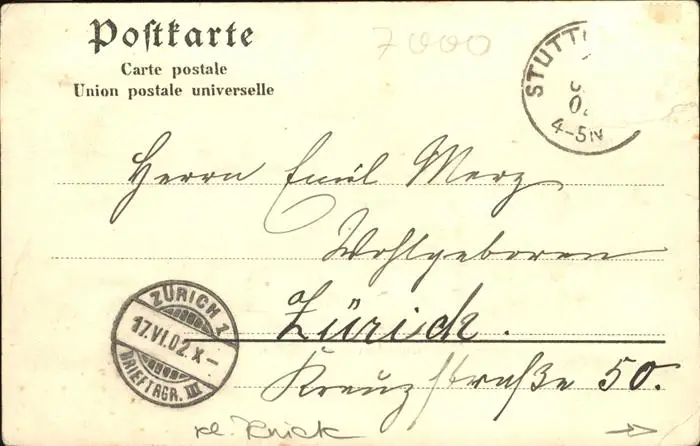 Postkarte
Carte postale
Union postale universelle
7000
STUTT
4-5N
Herrn Emil Merz
Wohlgeboren
Zürich.
Kreuzstraße 50.
ZÜRICH 1
17.VI.02.X-
BRIEFTRGR. III
kl. Knick